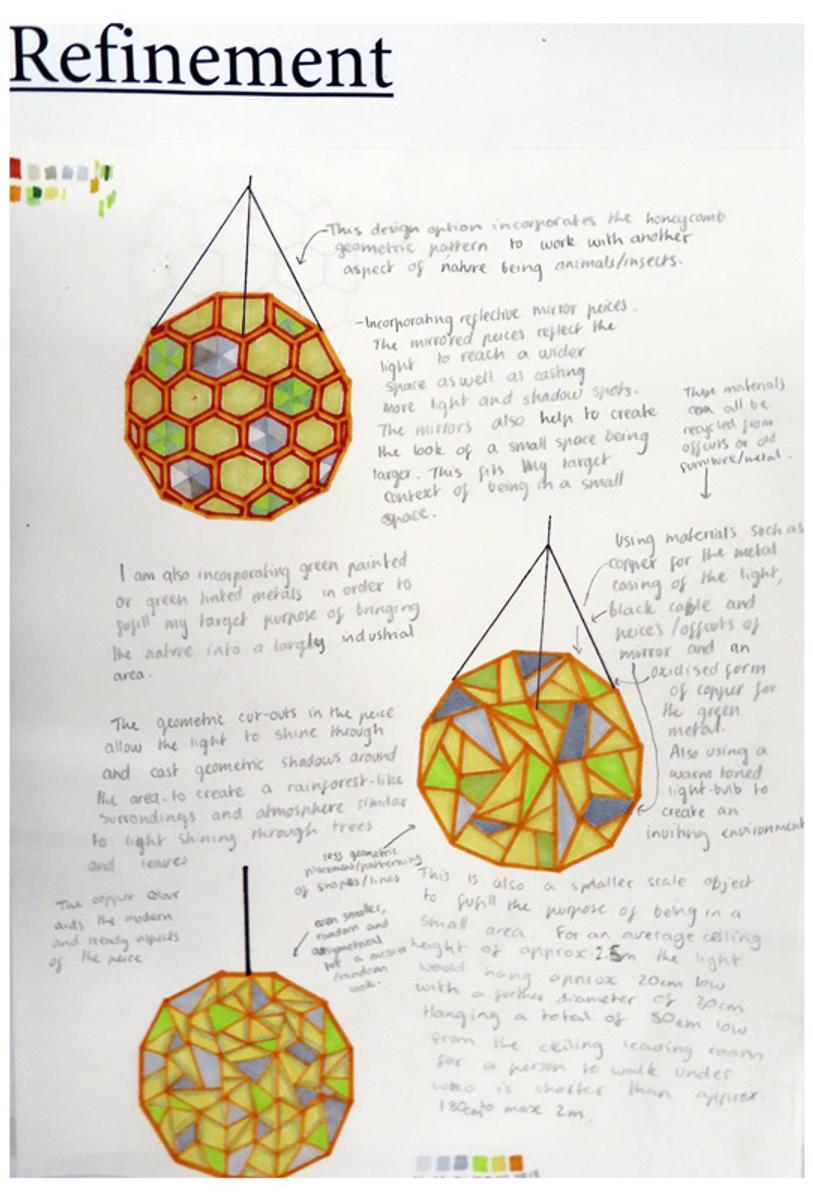 Refinement
This design option incorporates the honeycomb
geometric pattern to work with another
aspect of nature being animals/insects.
-Incorporating reflective mirror peices.
The mirrored peices reflect the
light to reach a wider
space aswell as cashing
more light and shadow spots.
The mirrors also help to create
the look of a small space being
larger. This fits my target
context of being in a small
space.
These materials
can all be
recycled from
offcuts or old
furniture/metal.
Using materials such as
copper for the metal
casing of the light,
black cable and
peice's/offcuts of
mirror and an
oxidised form
of copper for
the green
metal.
Also using a
warm toned
light-bulb to
create an
inviting environment
I am also incorporating green painted
or green tinted metals in order to
fufill my target purpose of bringing
the nature into a largly industrial
area.
The geometric cut-outs in the peice
allow the light to shine through
and cast geometric shadows around
the area. to create a rainforest-like
surrondings and atmosphere similar
to light shining through trees
and leaves
less geometric
placement/patterning
of shapes/lines
The copper color
aids the modern
and trendy aspects
of the peice
even smaller,
random and
assymetrical
for a
/random
look.
This is also a smaller scale object
to fufill the purpose of being in a
small area. For an average ceiling
height of approx 2.5m the light
would hang approx 20cm low
with a further diameter of 30cm
Hanging a total of 50cm low
from the ceiling leaving room
for a person to walk under
who is shorter than approx.
180cm to max 2m.